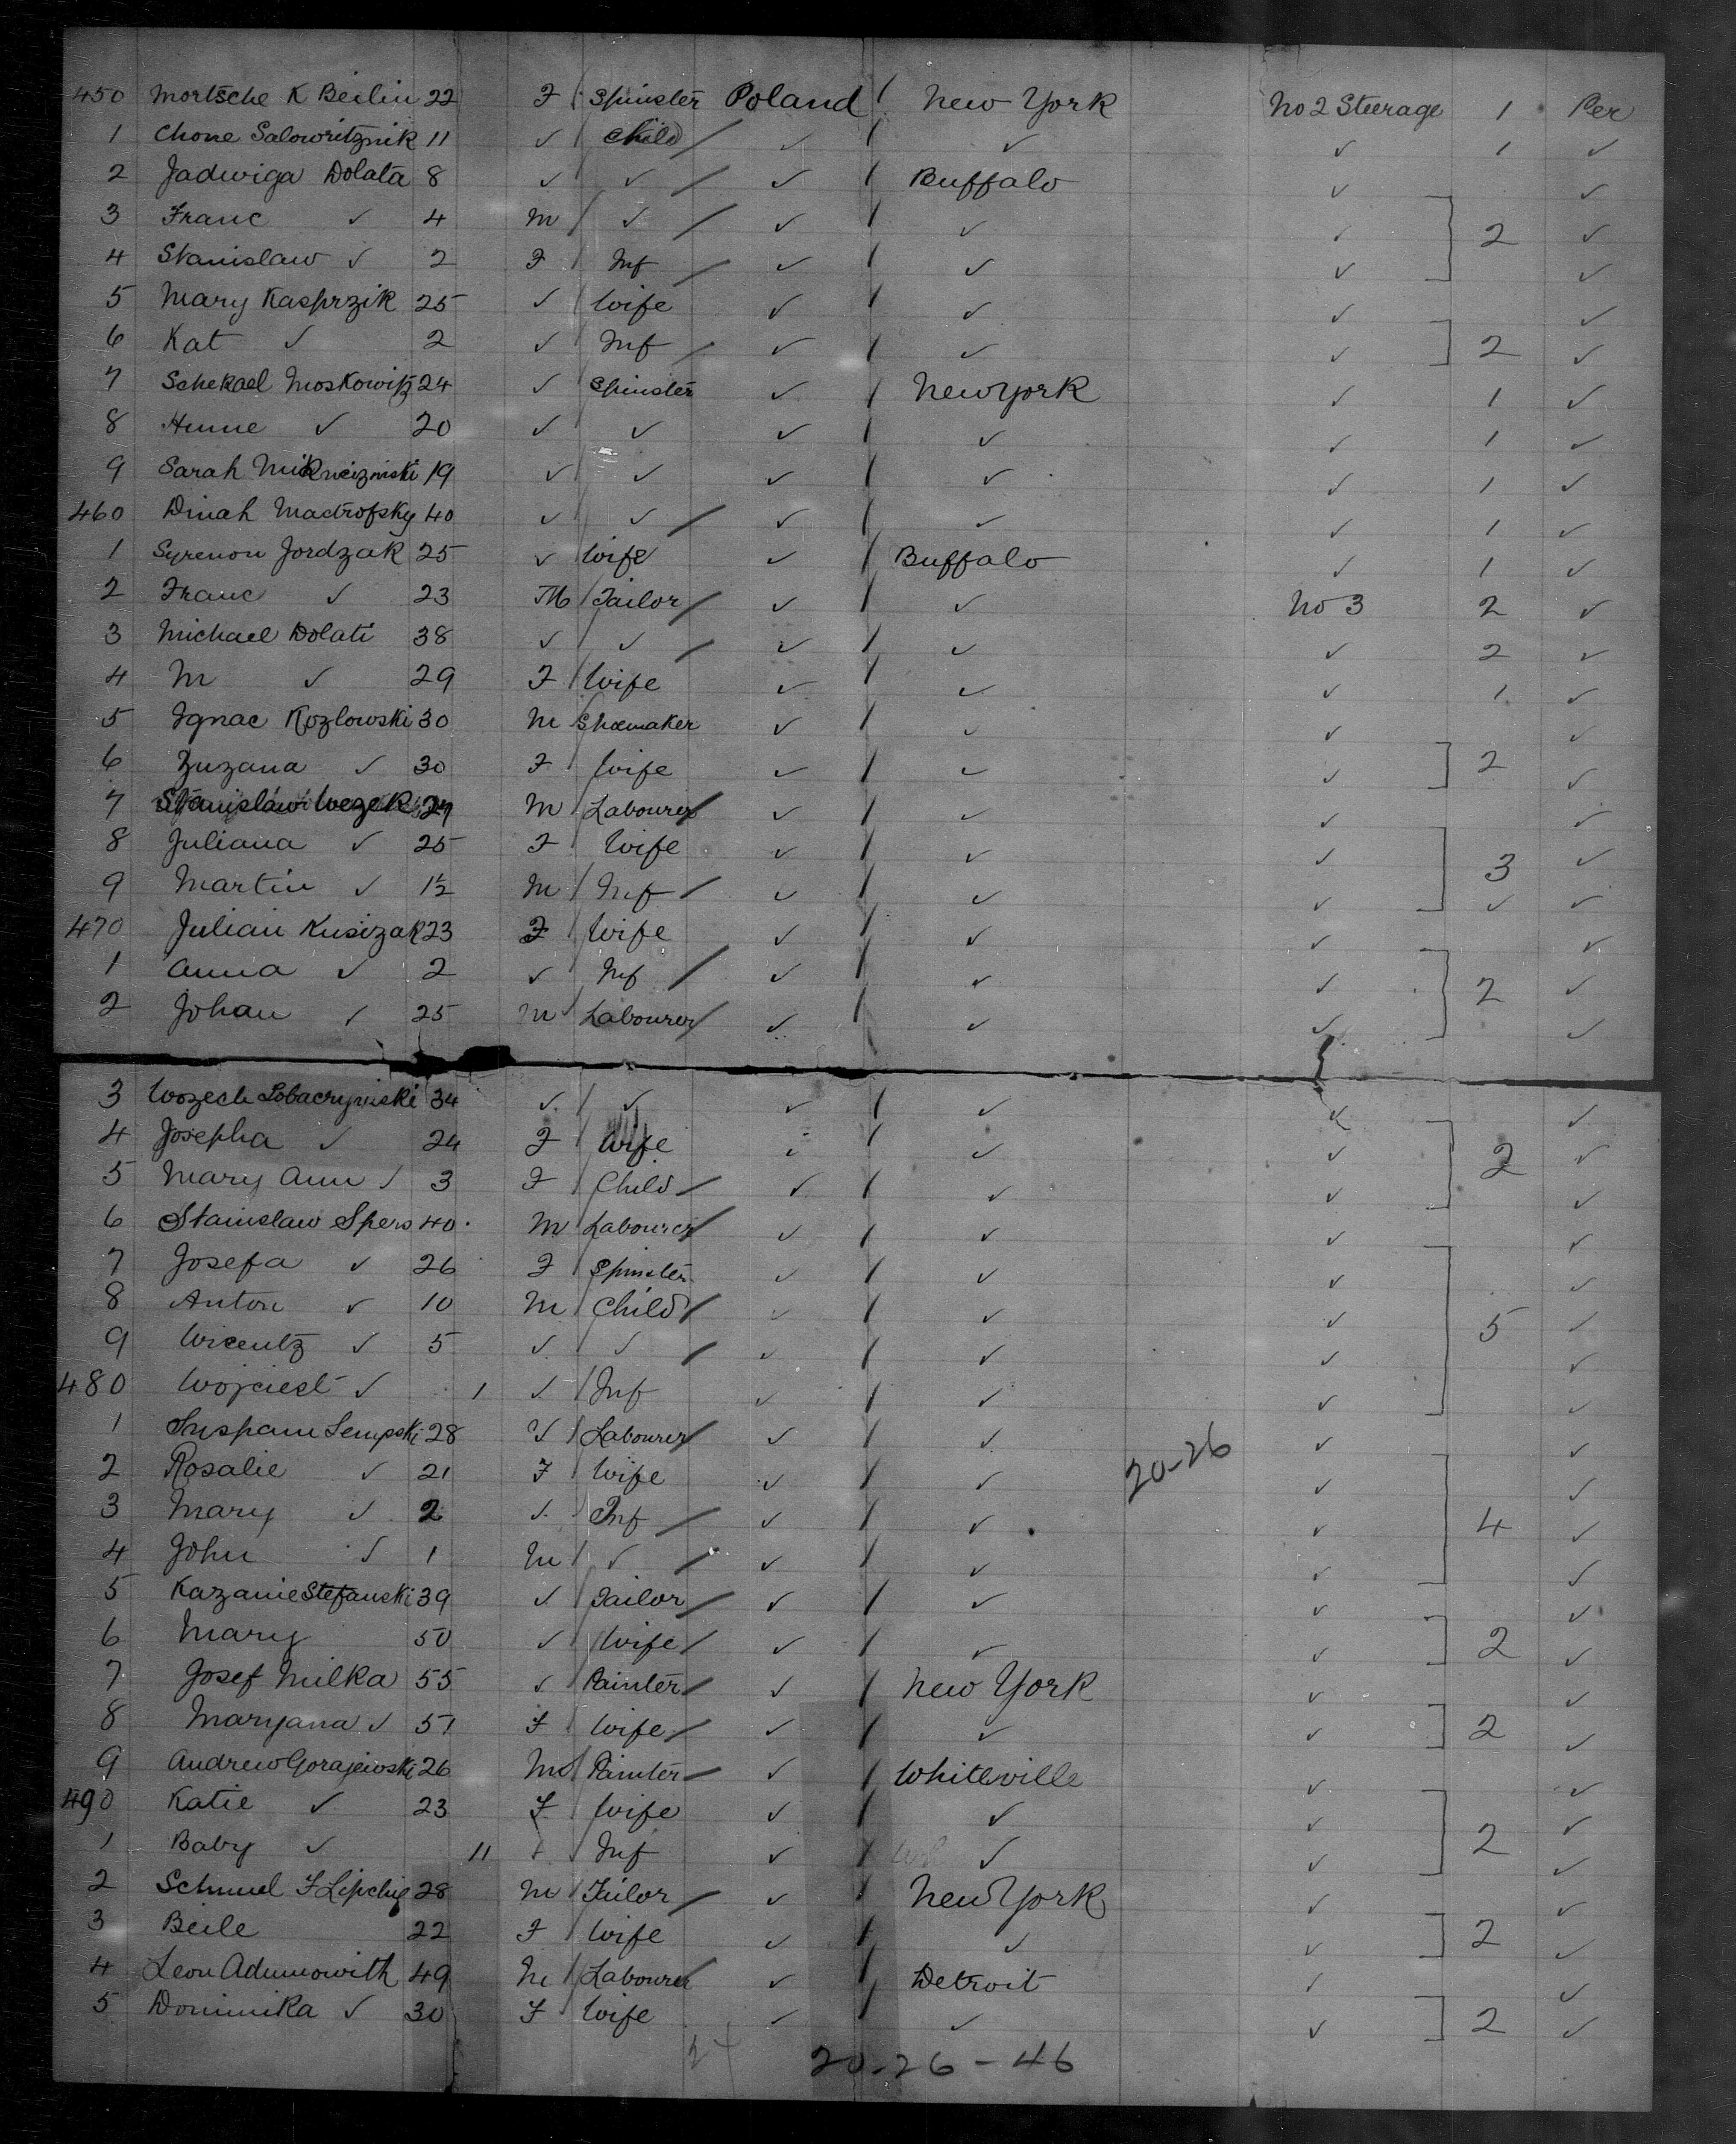 450 Mortsche K Beilin 22 F Spinster Poland New York No 2 Steerage 1 Per
1 Chone Salowritznik 11 ✓ Child ✓ ✓ ✓ 1 ✓
2 Jadwiga Dolata 8 ✓ ✓ ✓ Buffalo ✓ ✓
3 Franc ✓ 4 M ✓ ✓ ✓ ✓ 2 ✓
4 Stanislaw ✓ 2 F Inf ✓ ✓ ✓ ✓
5 Mary Kasprzik 25 ✓ Wife ✓ ✓ ✓ ✓
6 Kat ✓ 2 ✓ Inf ✓ ✓ ✓ 2 ✓
7 Schekael Moskowitz 24 ✓ Spinster ✓ New York ✓ 1 ✓
8 ✓ 20 ✓ ✓ ✓ ✓ ✓ 1 ✓
9 Sarah 19 ✓ ✓ ✓ ✓ ✓ 1 ✓
460 Dinah Mactrofsky 40 ✓ ✓ ✓ ✓ ✓ 1 ✓
1 Syrenon Jordzak 25 ✓ Wife ✓ Buffalo ✓ 1 ✓
2 Franc ✓ 23 M Tailor ✓ ✓ No 3 2 ✓
3 Michael Dolati 38 ✓ ✓ ✓ ✓ ✓ 2 ✓
4 M ✓ 29 F Wife ✓ ✓ ✓ 1 ✓
5 Ignac Kozlowski 30 M Shoemaker ✓ ✓ ✓ ✓
6 Zuzana ✓ 30 F Wife ✓ ✓ ✓ 2 ✓
7 Stanislaw Wezek 27 M Labourer ✓ ✓ ✓ ✓
8 Juliana ✓ 25 F Wife ✓ ✓ ✓ 3 ✓
9 Martin ✓ 1½ M Inf ✓ ✓ ✓ ✓ ✓
470 Julian Kusizak 23 F Wife ✓ ✓ ✓ ✓
1 Anna ✓ 2 ✓ Inf ✓ ✓ ✓ 2 ✓
2 Johan ✓ 25 M Labourer ✓ ✓ ✓ ✓
3 Wozech 34 ✓ ✓ ✓ ✓ ✓ ✓
4 Josepha ✓ 24 F Wife ✓ ✓ ✓ 2 ✓
5 Mary Ann ✓ 3 F Child ✓ ✓ ✓ ✓
6 Stanislaw Spers 40 M Labourer ✓ ✓ ✓ ✓
7 Josefa ✓ 26 F Spinster ✓ ✓ ✓ ✓
8 Anton ✓ 10 M Child ✓ ✓ ✓ 5 ✓
9 Wicentz ✓ 5 ✓ ✓ ✓ ✓ ✓ ✓
480 Wojciest ✓ 1 ✓ Inf ✓ ✓ ✓ ✓
1 Lempski 28 ✓ Labourer ✓ ✓ ✓ ✓
2 Rosalie ✓ 21 F Wife ✓ ✓ 20-26 ✓ ✓
3 Mary ✓ 2 ✓ Inf ✓ ✓ ✓ 4 ✓
4 John ✓ 1 M ✓ ✓ ✓ ✓ ✓
5 Kazanie Stefanski 39 ✓ Tailor ✓ ✓ ✓ ✓
6 Mary 50 ✓ Wife ✓ ✓ ✓ 2 ✓
7 Josef Milka 55 ✓ Painter ✓ New York ✓ ✓
8 Maryana ✓ 51 F Wife ✓ ✓ ✓ 2 ✓
9 Andrew Gorajewski 26 M Painter ✓ Whiteville ✓ ✓
490 Katie ✓ 23 F Wife ✓ ✓ ✓ 2 ✓
1 Baby ✓ 11 Inf ✓ ✓ ✓ ✓
2 Schmuel F Lipchig 28 M Tailor ✓ New York ✓ ✓
3 Beile 22 F Wife ✓ ✓ ✓ 2 ✓
4 Leon Adumowith 49 M Labourer ✓ Detroit ✓ ✓
5 Dominika ✓ 30 F Wife ✓ ✓ ✓ 2 ✓
20-26-46